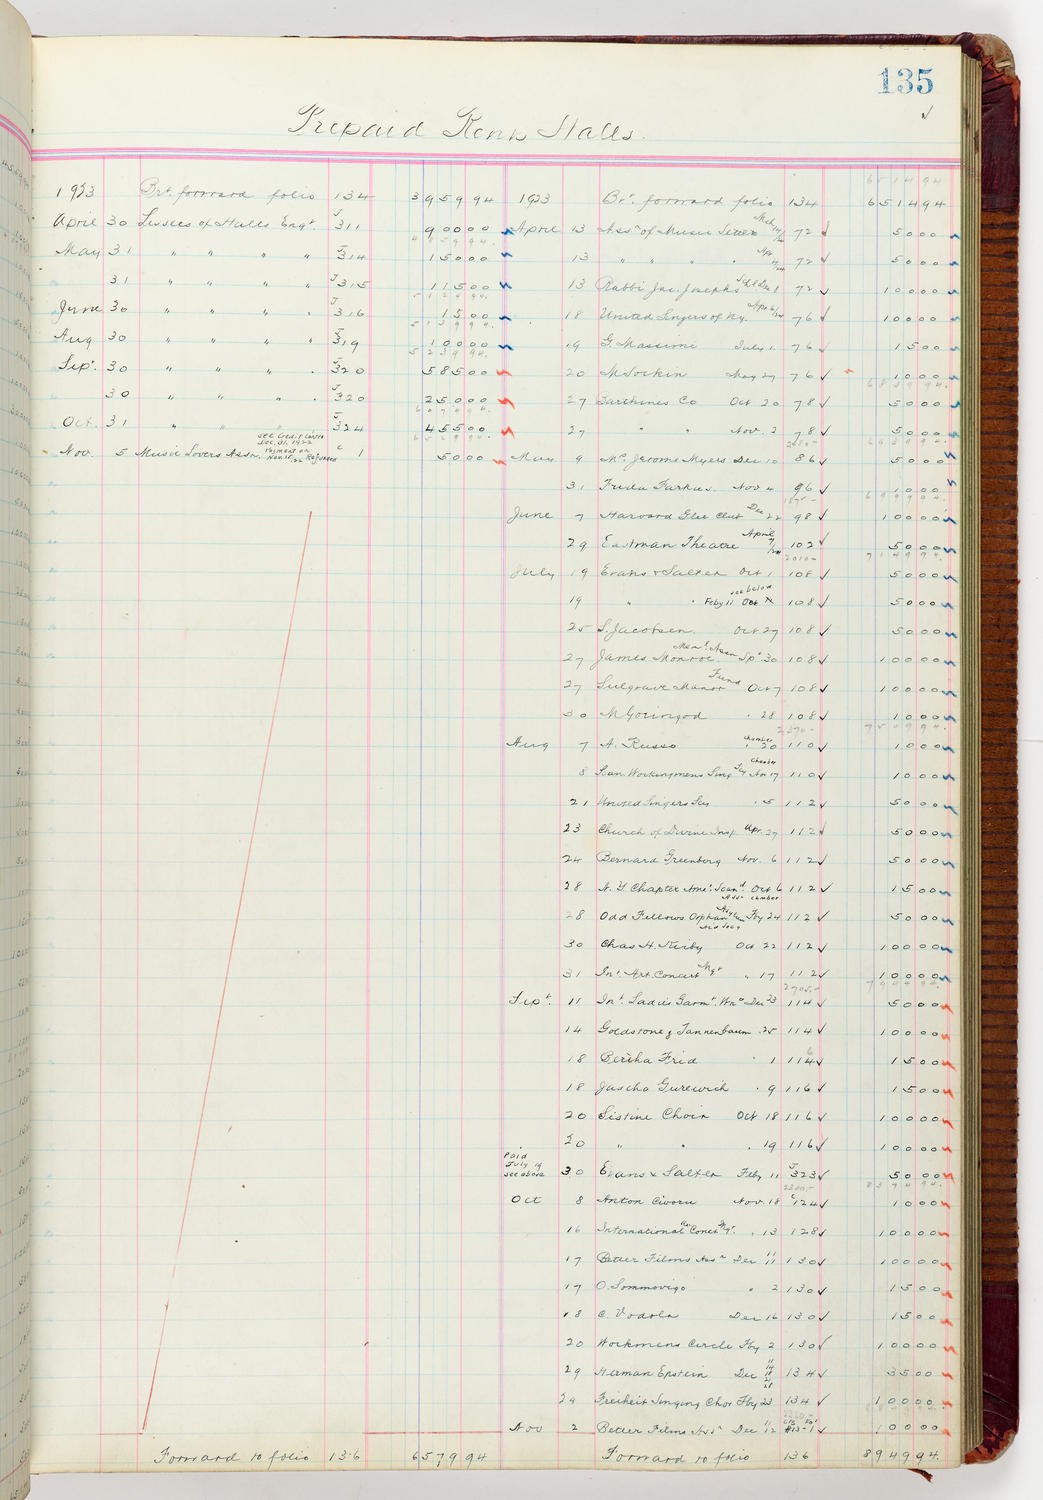 135
Prepaid Rents Halls.
1923 Brt. forward folio 134 395994
April 30 Lessees of Halls Engt. J311 90000
May 31 " " " " J314 15000
31 " " " " J315 11500
June 30 " " " J316 1500
Aug 30 " " " " J319 10000
Sept. 30 " " " J320 58500
30 " " " J320 25000
Oct. 31 " " " J324 45500
see Credit
Dec. 31. 1922
Payment on
Nov. 5 Music Lovers Assn. C 1 5000
Forward to folio 136 657994
651494
1923 Brt. forward folio 134 651494
April 13 Assn of Music 72 5000
13 " " " " 72 5000
13 Rabbi Jac. Josephs 72 10000
18 United Singers of Ny. 76 10000
19 G. Massimi July 1. 76 1500
20 M Sorkin May 27 76 1000
27 Co Oct 20 78 5000
27 " " Nov. 2 78 5000
May 9 Mrs. Jerome Myers Dec 10 86 5000
31 Frida Farkas. Nov 4 96 1000
June 7 Harvard Glee Club Dec 22 98 10000
29 Eastman Theatre April 102 5000
July 19 Evans & Salter Oct 1 108 5000
see below
19 " " Feby 11 Oct 108 5000
25 S. Jacobsen. Oct 27 108 5000
27 James Monroe Meml. Assn Spt. 30 108 10000
27 Sulgrave Manor Fund Oct 7 108 10000
30 M " 28 108 1000
Aug 7 A. Russo chamber " 20 110 1000
8 Workingmens Sing Soc chamber Nov 17 110 1000
21 United Singers Soc " 5 112 5000
23 Church of Divine Insp. Apr. 27 112 5000
24 Bernard Greenberg Nov. 6 112 5000
28 N. Y Chapter Ame. Scand. Oct 6 112 1500
28 Odd Fellows Orphan Asylum Fby 24 112 5000
30 Chas H. Kirby Oct 22 112 10000
31 Int. Art. Concert Mgt " 17 112 10000
Sept. 11 Int. Ladies Garmt. Wrs Dec 23 114 5000
14 Goldstone & Tannenbaum " 25 114 10000
18 Bertha Frid " 1 114 1500
18 Jascha Gurewich " 9 116 1500
20 Sistine Choir Oct 18 116 10000
20 " " " 19 116 10000
Paid
July 19
see above 30 Evans & Salter Feby 11 J323 5000
Oct 8 Anton Civoru Nov. 18 C124 1000
16 International Art Concert Mgt. " 13 128 10000
17 Better Films Assn Dec 11 130 10000
17 O. Sommovigo " 2 130 1500
18 C. Vodola Dec 16 130 1500
20 Workmens Circle Fby 2 130 10000
29 Herman Epstein Dec 134 3500
29 Freiheit Singing Chor Fby 23 134 10000
Nov 2 Better Films Assn Dec 12 10000
Forward to folio 136 894994.